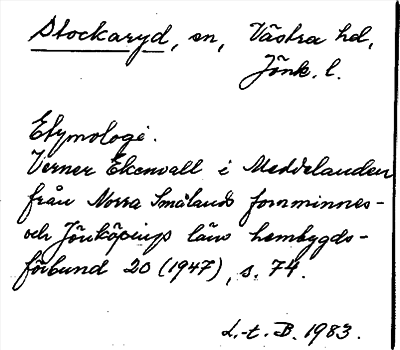 Stockaryd, sn, Västra hd,
Jönk. l.
Etymologi.
Verner Ekenvall i Meddelanden
från Norra Smålands fornminnes-
och Jönköpings läns hembygds-
förbund 20 (1947), s. 74.
L.-t. B. 1983.